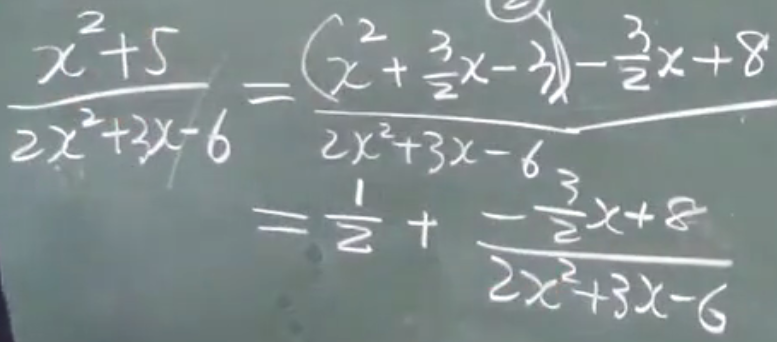 (x²+5)/(2x²+3x-6) = ((x² + 3/2x - 3) - 3/2x + 8)/(2x²+3x-6)
= 1/2 + (-3/2x+8)/(2x²+3x-6)